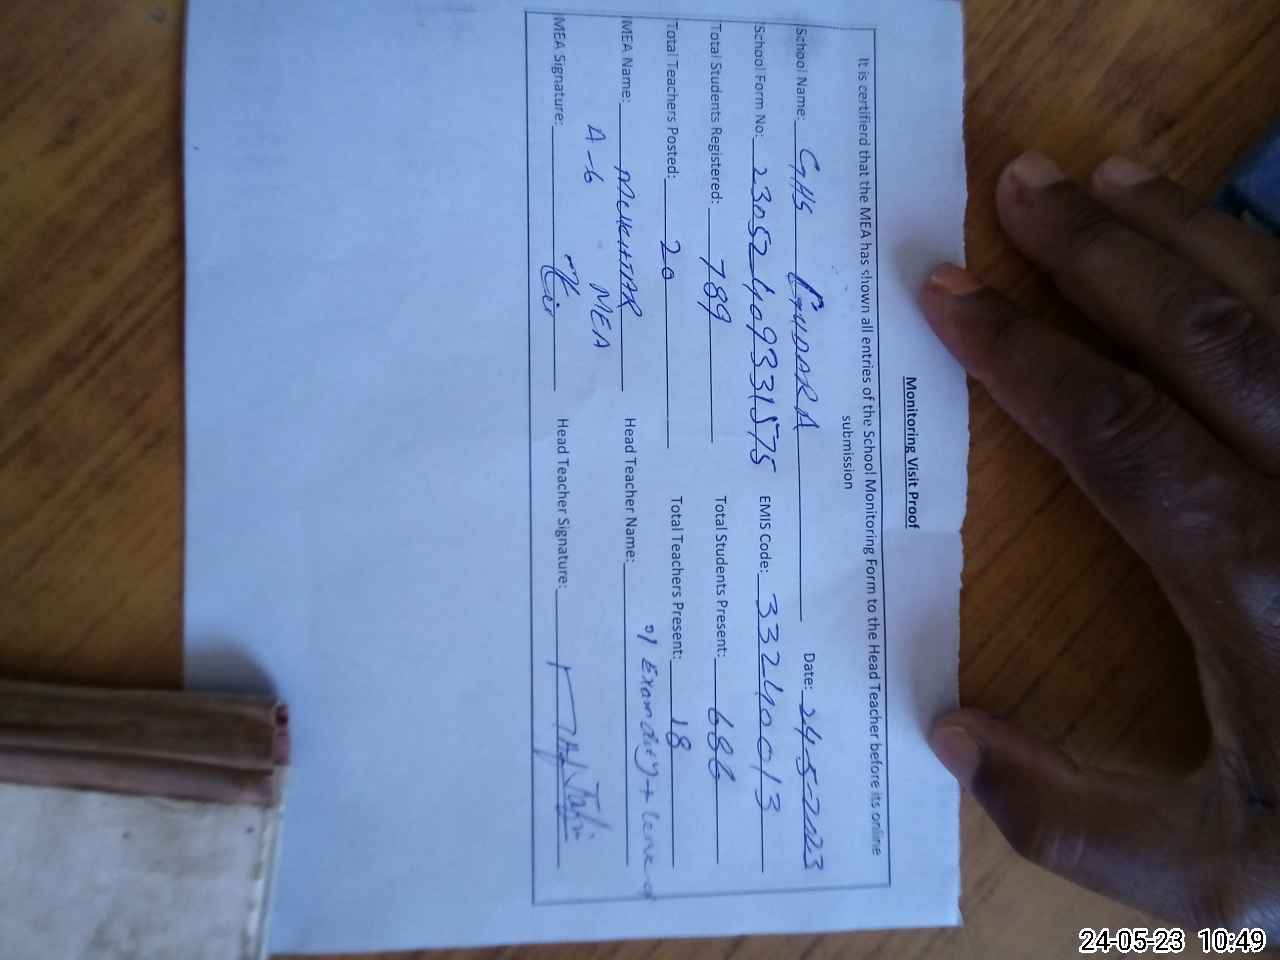 Monitoring Visit Proof
It is certifierd that the MEA has shown all entries of the School Monitoring Form to the Head Teacher before its online
submission
School Name: GHS GUDARA Date: 24-5-2023
School Form No: 23052409331575 EMIS Code: 33240013
Total Students Registered: 789 Total Students Present: 686
Total Teachers Posted: 20 Total Teachers Present: 18
01 Exam duty + leave
MEA Name: MUKHTAR Head Teacher Name:
A-6 MEA
MEA Signature: Head Teacher Signature:
24-05-23 10:49